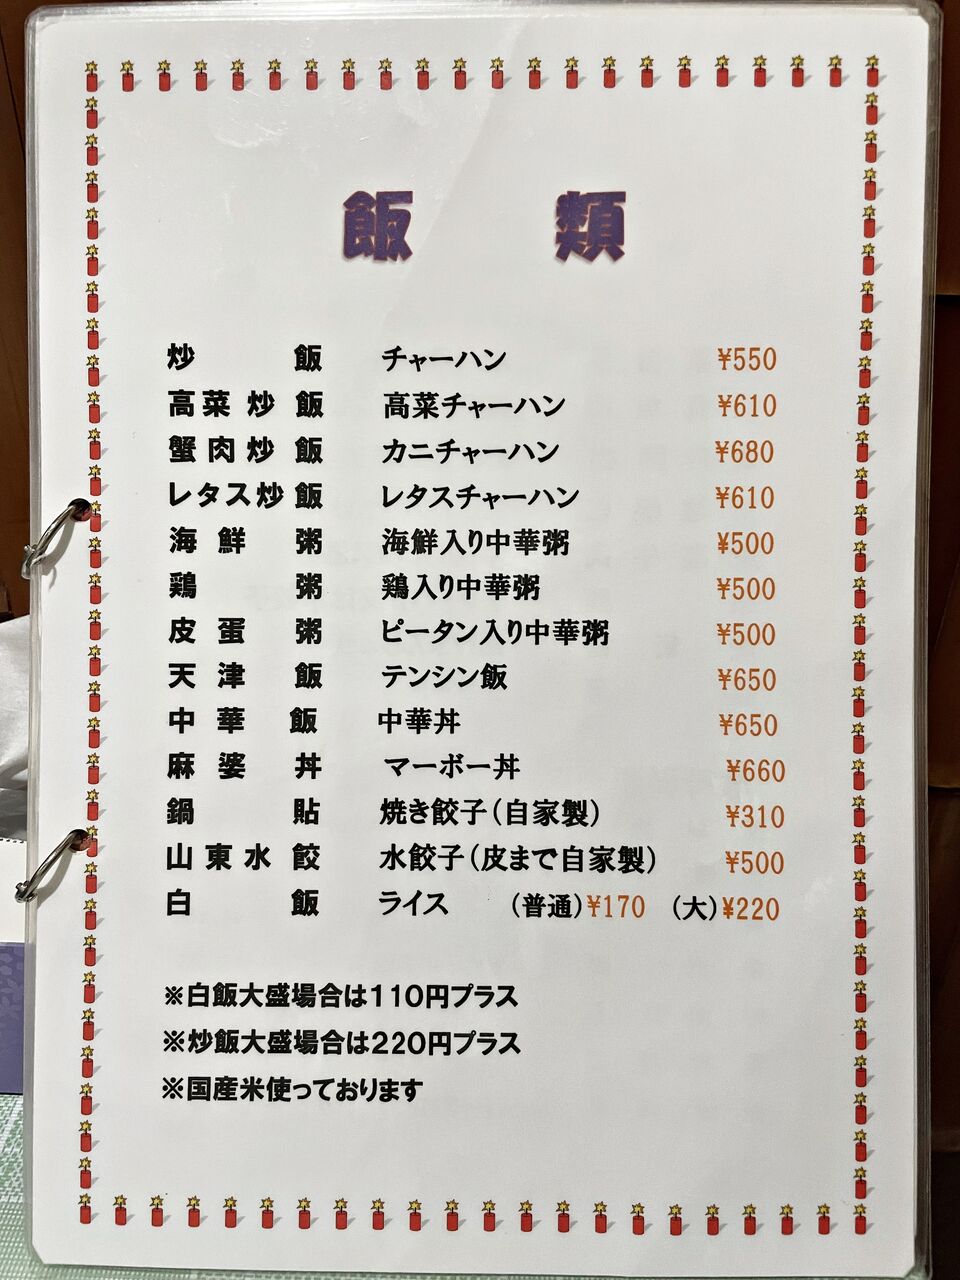 飯類
炒飯 チャーハン ¥550
高菜炒飯 高菜チャーハン ¥610
蟹肉炒飯 カニチャーハン ¥680
レタス炒飯 レタスチャーハン ¥610
海鮮粥 海鮮入り中華粥 ¥500
鶏粥 鶏入り中華粥 ¥500
皮蛋粥 ピータン入り中華粥 ¥500
天津飯 テンシン飯 ¥650
中華飯 中華丼 ¥650
麻婆丼 マーボー丼 ¥660
鍋貼 焼き餃子(自家製) ¥310
山東水餃 水餃子(皮まで自家製) ¥500
白飯 ライス (普通)¥170 (大)¥220
※白飯大盛場合は110円プラス
※炒飯大盛場合は220円プラス
※国産米使っております